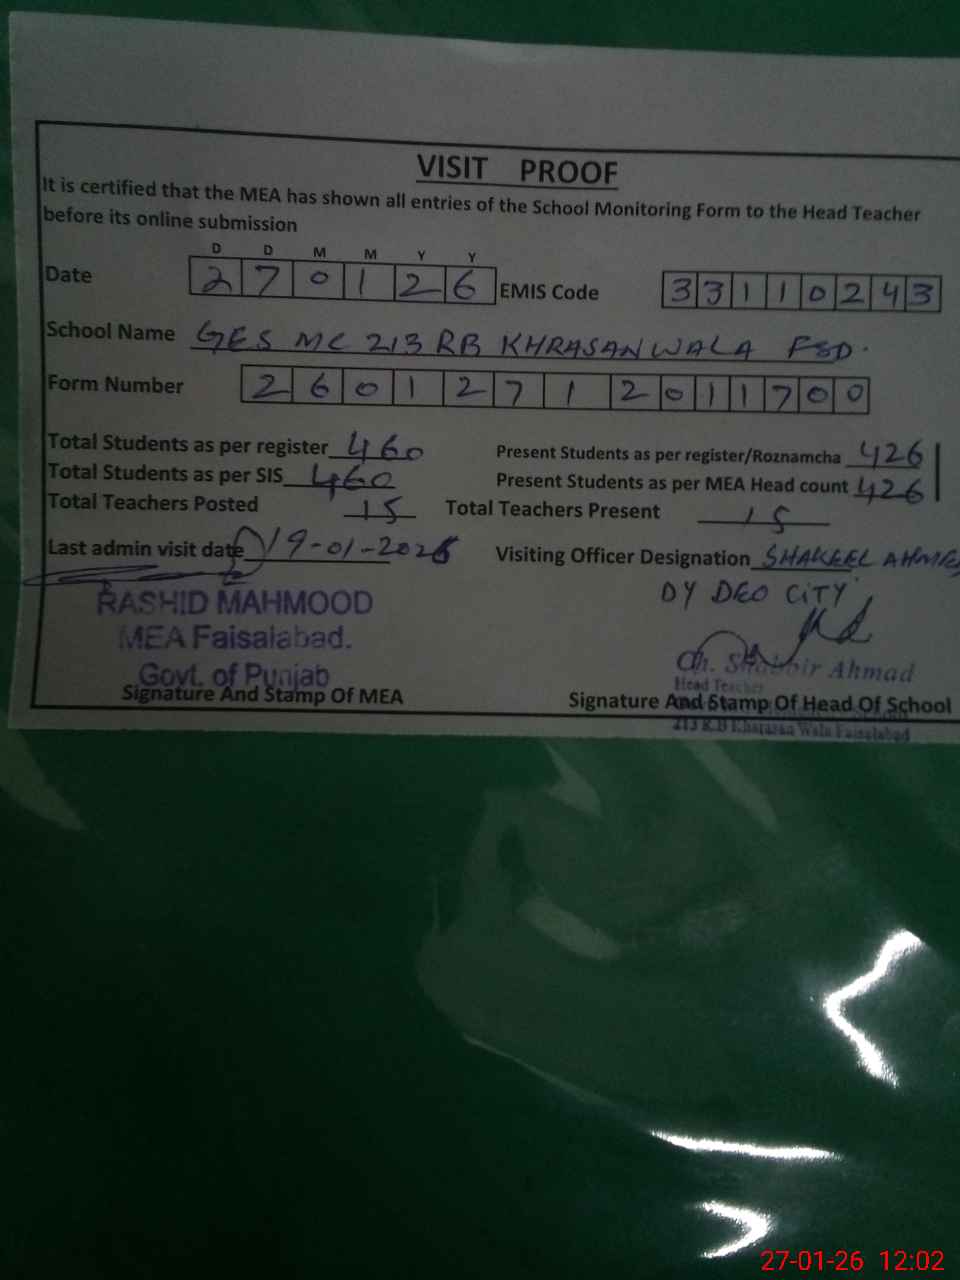 VISIT PROOF
It is certified that the MEA has shown all entries of the School Monitoring Form to the Head Teacher
before its online submission
D D M M Y Y
Date 2 7 0 1 2 6 EMIS Code 3 3 1 1 0 2 4 3
School Name GES MC 213 RB KHRASANWALA FSD.
Form Number 2 6 0 1 2 7 1 2 0 1 1 7 0 0
Total Students as per register 460 Present Students as per register/Roznamcha 426
Total Students as per SIS 460 Present Students as per MEA Head count 426
Total Teachers Posted 15 Total Teachers Present 15
Last admin visit date 19-01-2026 Visiting Officer Designation SHAKEEL AHMED
DY DEO CITY
RASHID MAHMOOD
MEA Faisalabad.
Govt. of Punjab
Signature And Stamp Of MEA
Ch. Shabbir Ahmad
Head Teacher
Signature And Stamp Of Head Of School
213 R.B Kharasan Wala Faisalabad
27-01-26 12:02